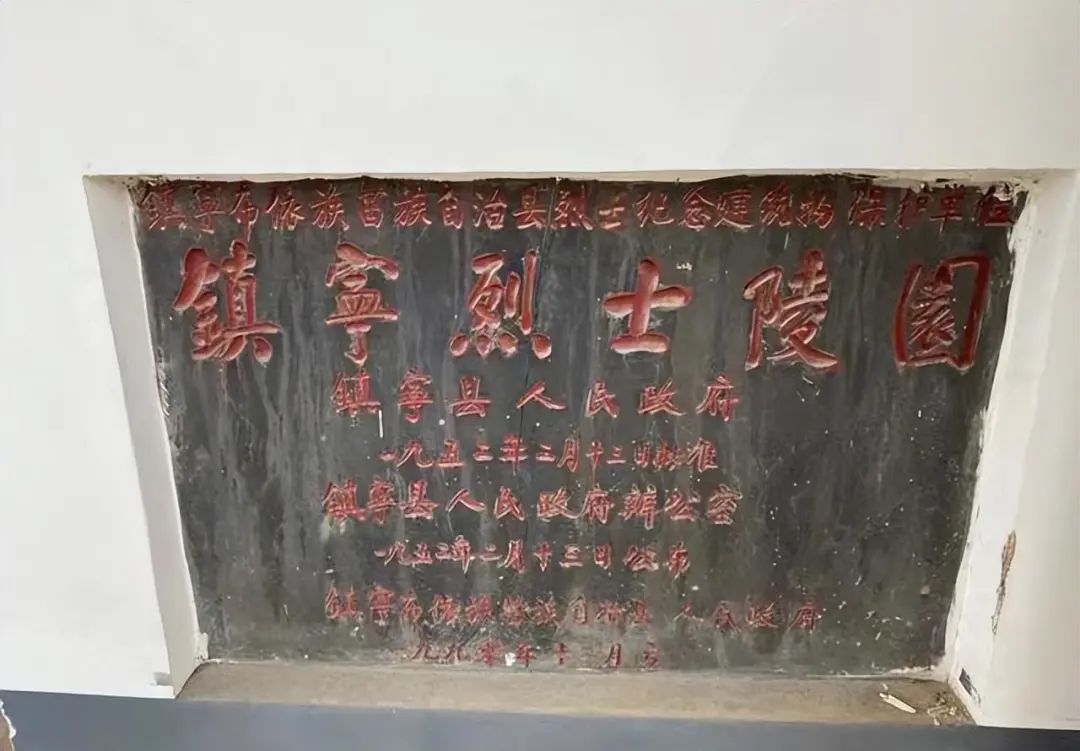 鎮寧布依族苗族自治县烈士纪念建筑物保护单位
鎮寧烈士陵園
鎮寧县人民政府
一九五二年二月十三日批准
鎮寧县人民政府辦公室
一九五二年二月十三日公布
鎮寧布依族苗族自治县人民政府
一九九零年十月立